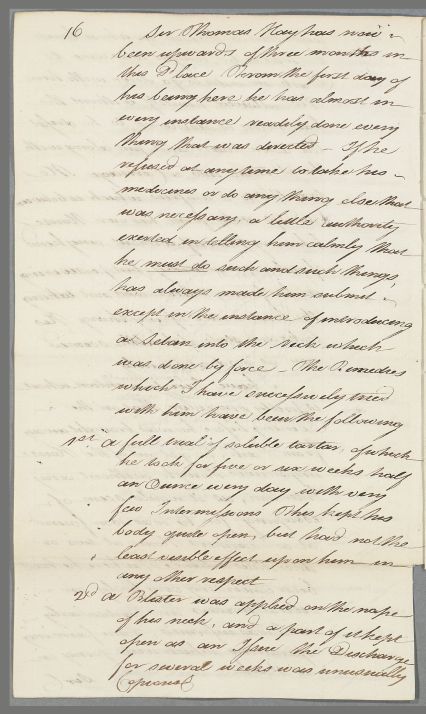 16 Sir Thomas Hay has now
been upwards of three months in
this Place From the first day of
his being here he has almost in
every instance readily done every
thing that was directed – If he
refused at any time to take his
medicines or do any thing else that
was necessary a little authority
exerted in telling him calmly that
he must do such and such things,
has always made him submit
except in the instance of introducing
a Seton into the neck which
was done by force – The Remedies
which I have successively tried
with him have been the following
1st a full trial of soluble tartar, of which
he took for five or six weeks half
an Ounce every day with very
few Intermissions This kept his
body quite open, but had not the
least visible effect upon him in
any other respect
2d a Blister was applied on the nape
of his neck, and a part of it kept
open as an Issue the Discharge
for several weeks was unusually
Copious